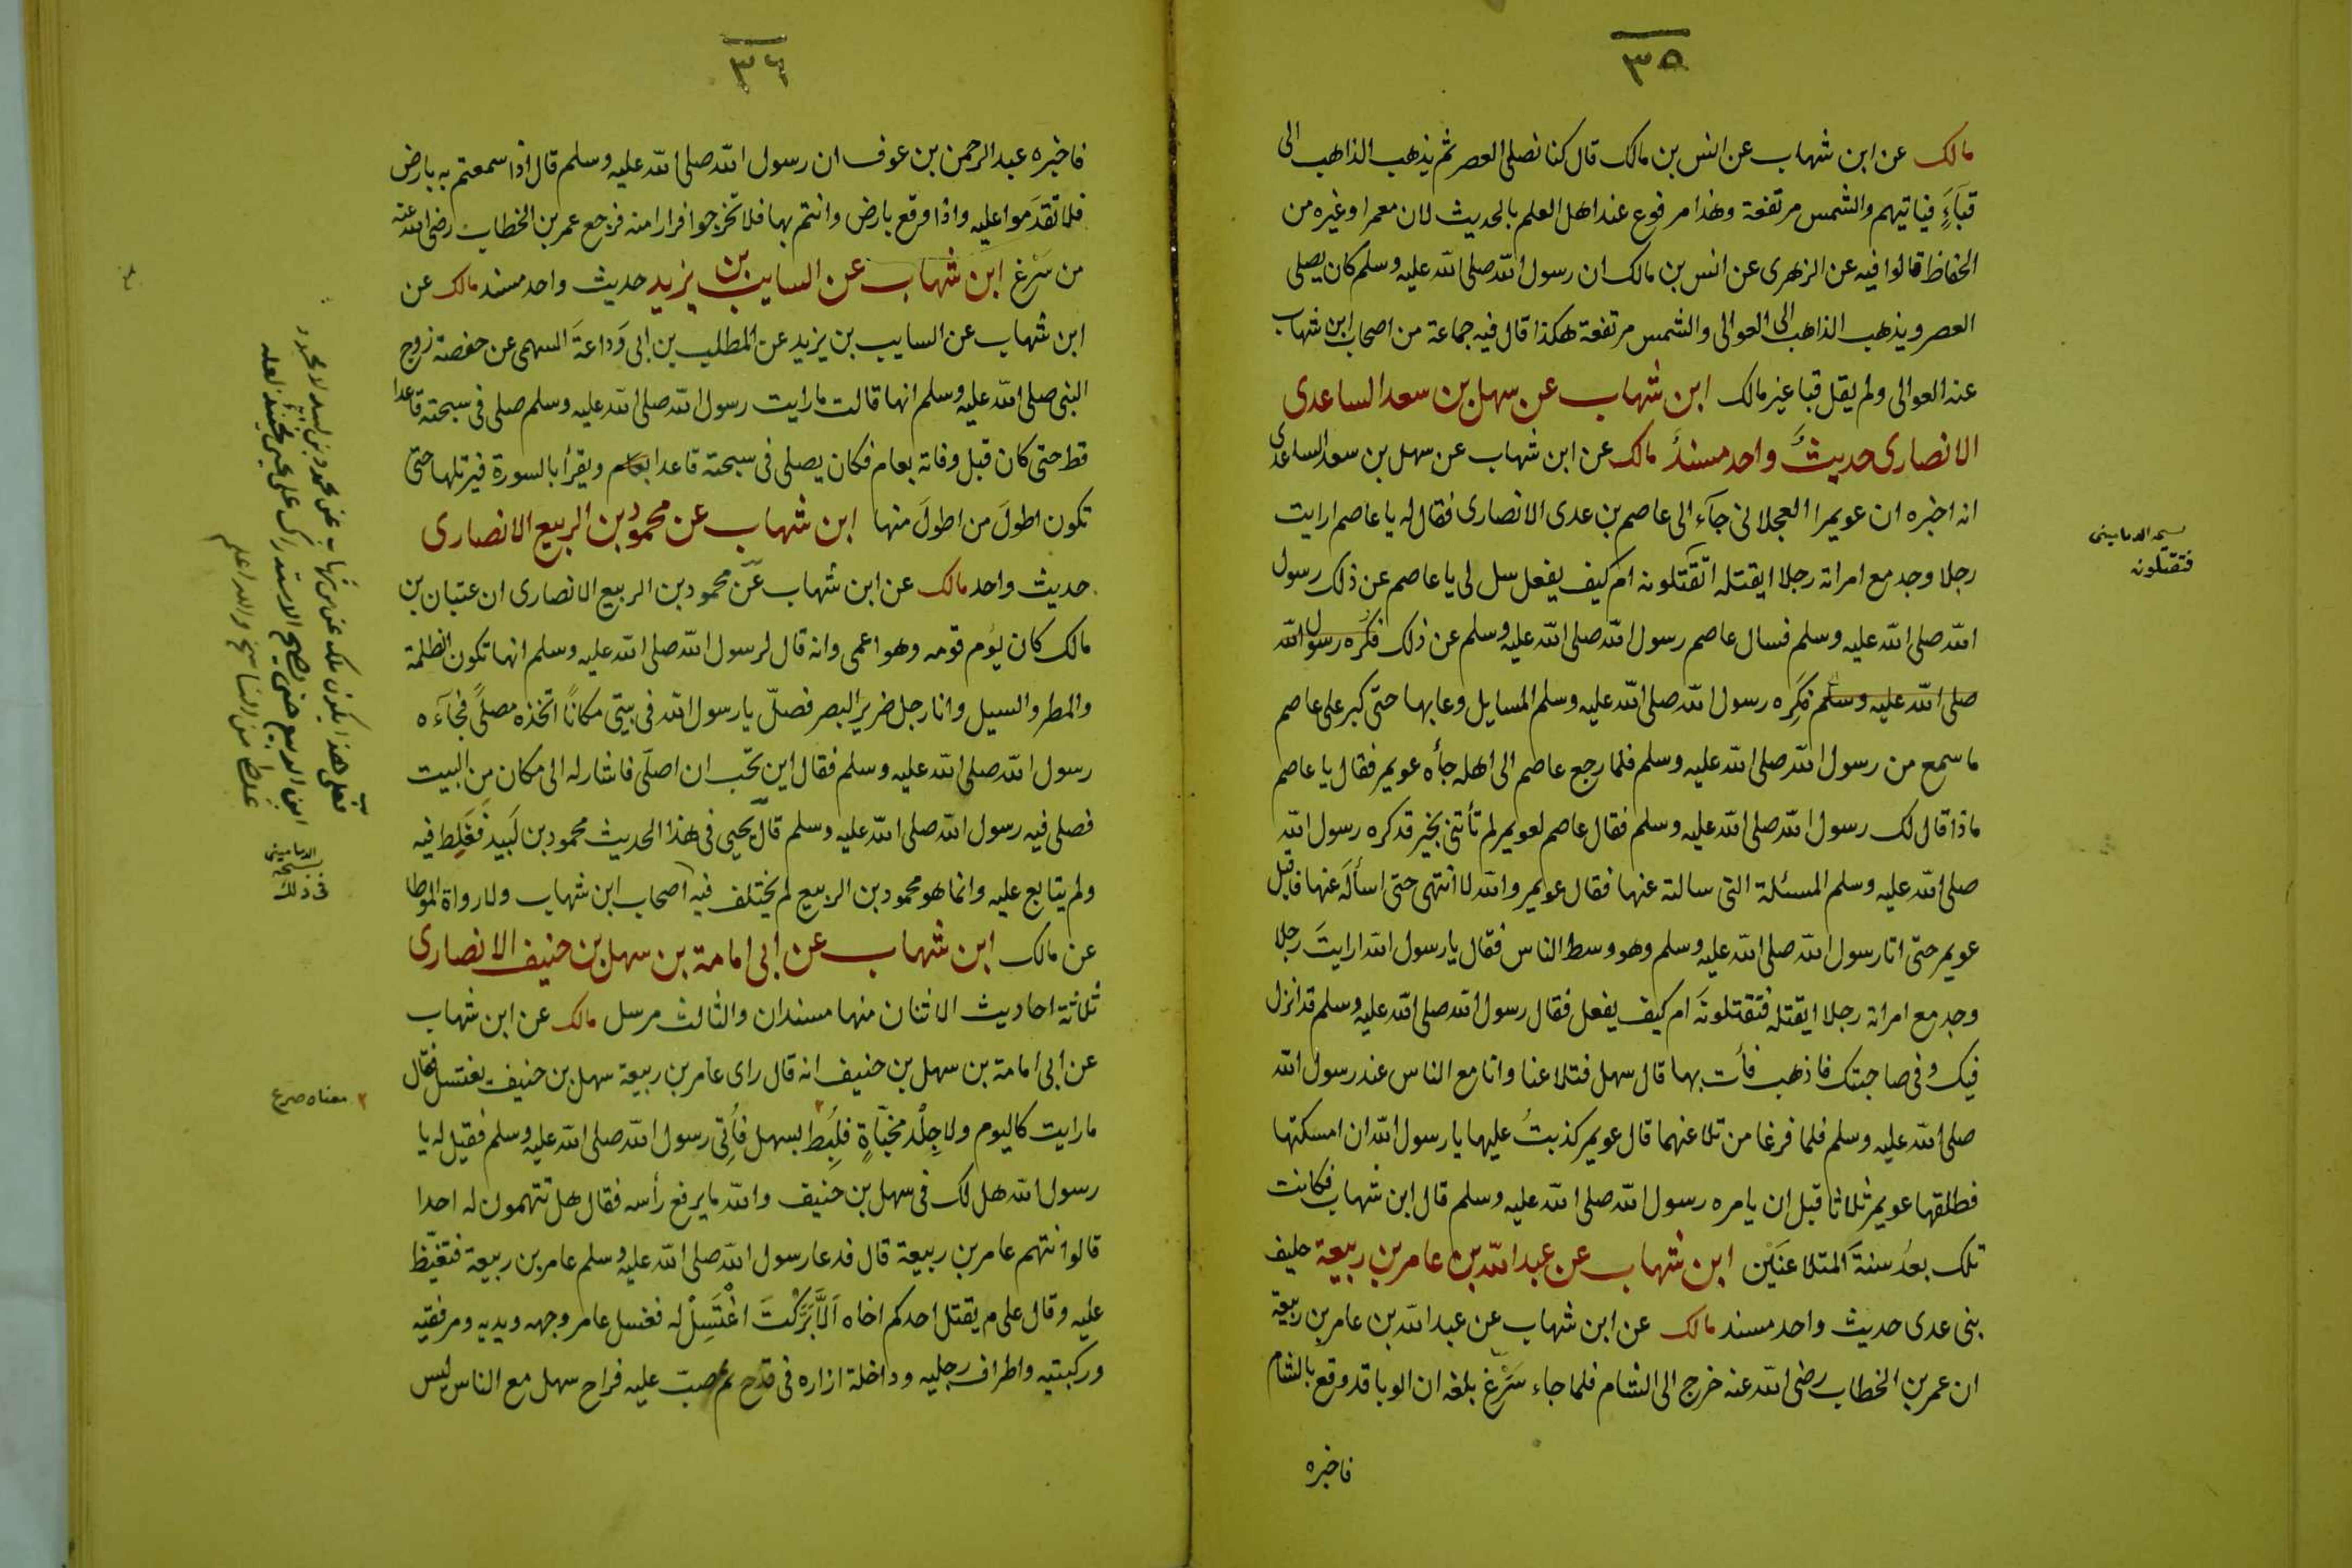 ٣٥
مالك عن ابن شهاب عن انس بن مالك قال كنا نصلى العصر ثم يذهب الذاهب الى
قبآءٍ فياتيهم والشمس مرتفعة وهذا مرفوع عند اهل العلم بالحديث لان معمرا وغيره من
الحفاظ قالوا فيه عن الزهرى عن انس بن مالك ان رسول الله صلى الله عليه وسلم كان يصلى
العصر ويذهب الذاهب الى العوالى والشمس مرتفعة هكذا قال فيه جماعة من اصحاب ابن شهاب
عنه العوالى ولم يقل قبا غير مالك ابن شهاب عن سهل بن سعد الساعدى
الانصارى حديثٌ واحد مسندٌ مالك عن ابن شهاب عن سهل بن سعد الساعدى
انه اخبره ان عويمرا العجلانى جآء الى عاصم بن عدى الانصارى فقال له يا عاصم ارايت
رجلا وجد مع امراته رجلا ايقتله اتقتلونه ام كيف يفعل سل لى يا عاصم عن ذلك رسول
الله صلى الله عليه وسلم فسال عاصم رسول الله صلى الله عليه وسلم عن ذلك فكره رسول الله
صلى الله عليه وسلم فكَرِه رسول الله صلى الله عليه وسلم المسايل وعابها حتى كبر على عاصم
ما سمع من رسول الله صلى الله عليه وسلم فلما رجع عاصم الى اهله جأه عويمر فقال يا عاصم
ماذا قال لك رسول الله صلى الله عليه وسلم فقال عاصم لعويمر لم تأتنى بخير قد كره رسول الله
صلى الله عليه وسلم المسئلة التى سالته عنها فقال عويمر والله لا انتهى حتى اسألَه عنها فاقبل
عويمر حتى اتا رسول الله صلى الله عليه وسلم وهو وسط الناس فقال يا رسول الله ارايتَ رجلا
وجد مع امراته رجلا ايقتله فتقتلونَه ام كيف يفعل فقال رسول الله صلى الله عليه وسلم قد انزل
فيك وفى صاحبتك فاذهب فأت بها قال سهل فتلاعنا وانا مع الناس عند رسول الله
صلى الله عليه وسلم فلما فرغا من تلاعنهما قال عويمر كذبتُ عليها يا رسول الله ان امسكتها
فطلقها عويمر ثلاثا قبل ان يامره رسول الله صلى الله عليه وسلم قال ابن شهاب فكانت
تلك بعدُ سنةَ المتلاعنَيْن ابن شهاب عن عبد الله بن عامر بن ربيعة حليف
بنى عدى حديث واحد مسند مالك عن ابن شهاب عن عبد الله بن عامر بن ربيعة
ان عمر بن الخطاب رضى الله عنه خرج الى الشام فلما جاء سَرْغ بلغه ان الوبا قد وقع بالشام
فاخبره
الدمامينى
فتقتلونه
٣٦
فاخبره عبد الرحمن بن عوف ان رسول الله صلى الله عليه وسلم قال اذا سمعتم به بارض
فلا تقدَموا عليه واذا وقع بارض وانتم بها فلا تخرجوا فرارا منه فرجع عمر بن الخطاب رضى الله عنه
من سَرْغ ابن شهاب عن السايب بن يزيد حديث واحد مسند مالك عن
ابن شهاب عن السايب بن يزيد عن المطلب بن ابى وَداعةَ السهمى عن حفصة زوج
النبى صلى الله عليه وسلم انها قالت ما رايت رسول الله صلى الله عليه وسلم صلى فى سبحته قاعدا
قط حتى كان قبل وفاته بعام فكان يصلى فى سبحته قاعدا بعام ويقرأ بالسورة فيرتلها حتى
تكون اطولَ من اطولَ منها ابن شهاب عن محمود بن الربيع الانصارى
حديث واحد مالك عن ابن شهاب عن محمود بن الربيع الانصارى ان عتبان بن
مالك كان يؤم قومه وهو اعمى وانه قال لرسول الله صلى الله عليه وسلم انها تكون الظلمة
والمطر والسيل وانا رجل ضرير البصر فصلّ يا رسول الله فى بيتى مكانًا اتخذه مصلًى فجآءه
رسول الله صلى الله عليه وسلم فقال اين تحب ان اصلّى فاشار له الى مكان من البيت
فصلى فيه رسول الله صلى الله عليه وسلم قال يحيى فى هذا الحديث محمود بن لَبيد فغَلِط فيه
ولم يتابع عليه وانما هو محمود بن الربيع لم يختلف فيه اصحاب ابن شهاب ولا رواة الموطا
عن مالك ابن شهاب عن ابى امامة بن سهل بن حنيف الانصارى
ثلاثة احاديث الاثنان منها مسندان والثالث مرسل مالك عن ابن شهاب
عن ابى امامة بن سهل بن حنيف انه قال راى عامر بن ربيعة سهل بن حنيف يغتسل فقال
ما رايت كاليوم ولا جِلْد مخبّآةٍ فلُبِط ٢ بسهل فأُتِى رسول الله صلى الله عليه وسلم فقيل له يا
رسول الله هل لك فى سهل بن حنيف والله ما يرفع رأسه فقال هل تتهمون له احدا
قالوا نتهم عامر بن ربيعة قال فدعا رسول الله صلى الله عليه وسلم عامر بن ربيعة فتغيّظ
عليه وقال على م يقتل احدكم اخاه اَلاَّ بَرَّكْتَ اغْتَسِلْ له فغسل عامر وجهه ويديه ومرفقيه
وركبتيه واطراف رجليه وداخلة ازاره فى قدح ثم صب عليه فراح سهل مع الناس ليس
فعلى هذا يكون ملك عن ابن شهاب عن محمود بن لبيد لا محمود
ابن الربيع حتى يصح الاستدراك على يحيى حينئذ لعله
غلط من الناسخ والله اعلم
الدمامينى
نسخه
فى ذلك
٢ معناه صرع